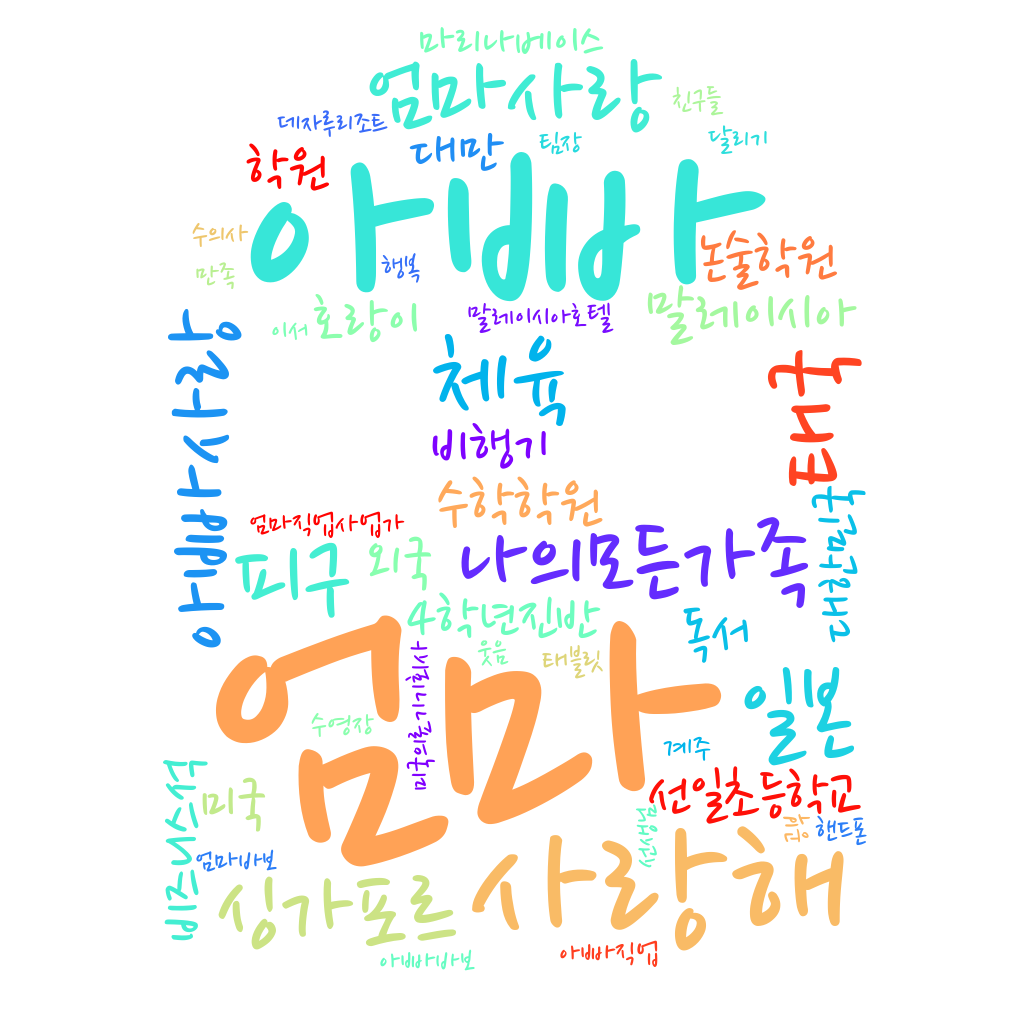 마리나베이스
엄마사랑
친구들
데자루리조트
대만
팀장
달리기
학원
아빠
수의사
논술학원
만족
행복
이서
호랑이
말레이시아호텔
말레이시아
아빠사랑
체육
태국
비행기
수학학원
대한민국
엄마직업사업가
피구
외국
나의모든가족
4학년진반
독서
웃음
태블릿
엄마
미국의료기기회사
수영장
일본
계주
비즈니스석
미국
선일초등학교
핸드폰
엄마바보
싱가포르
사랑해
아빠바보
아빠직업